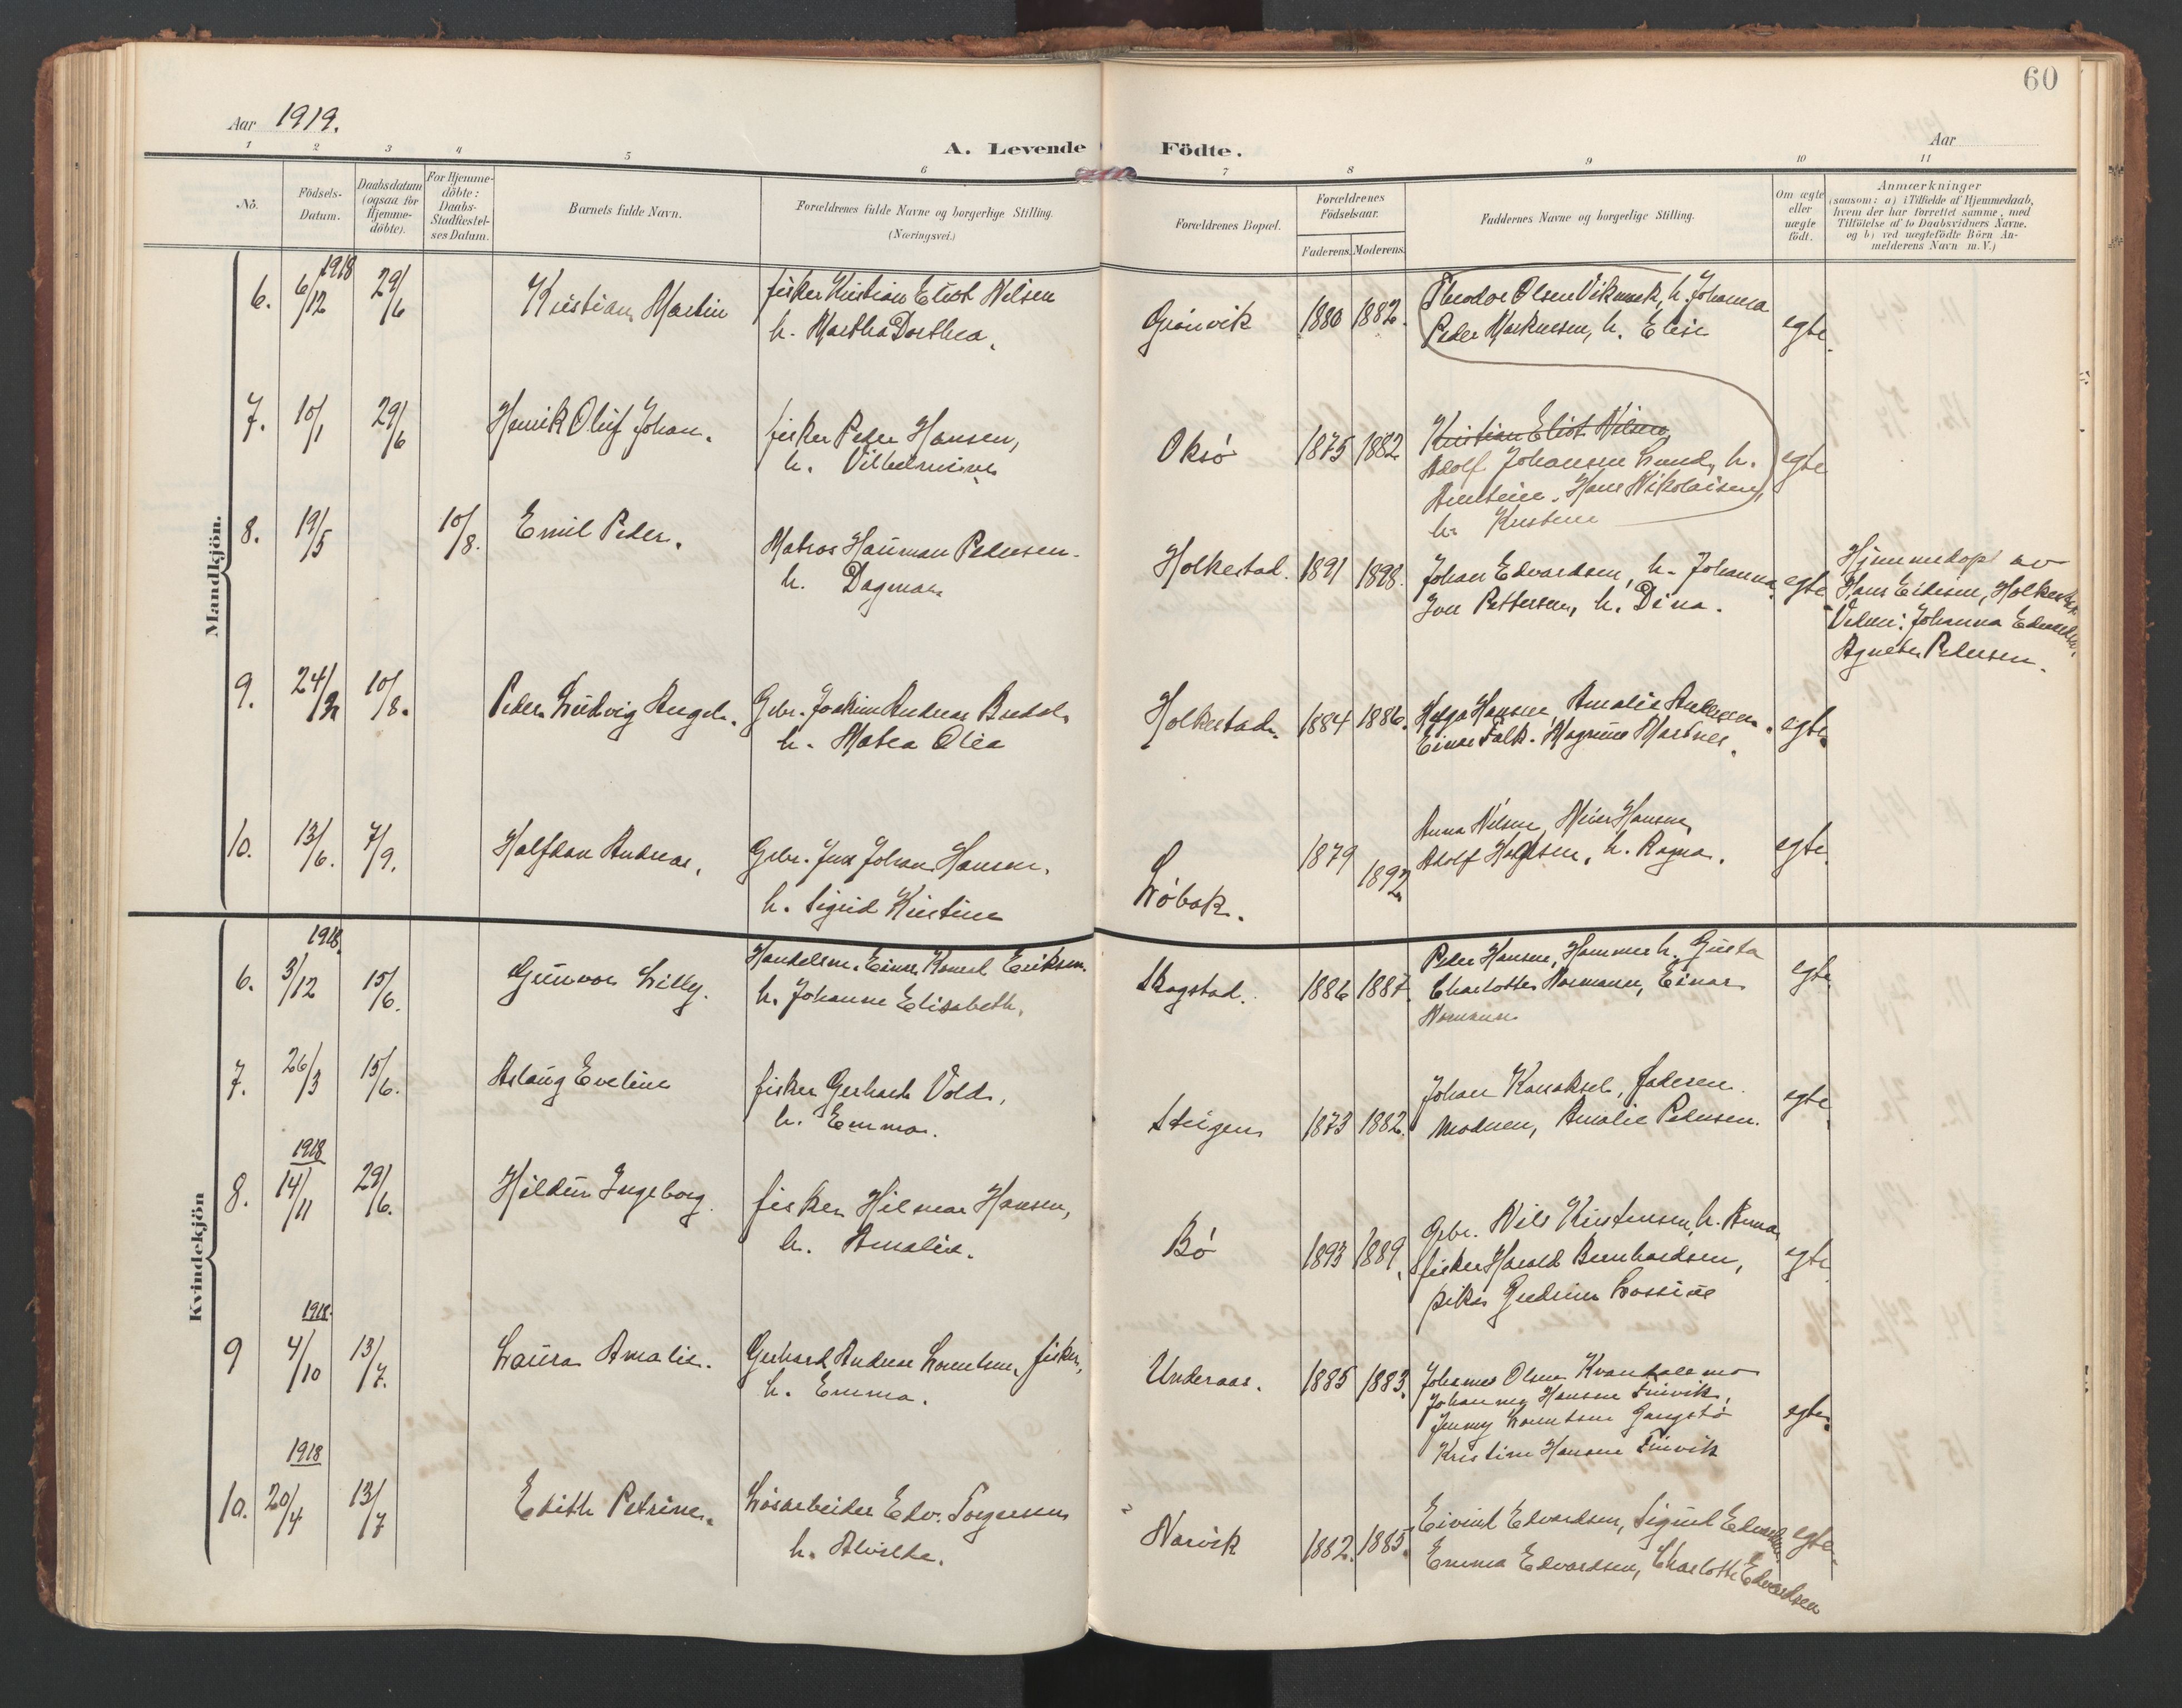 60
Aar 1919.
Aar
A. Levende Födte.
1 2 3 4 5 6 7 8 9 10 11
No.
Födsels-Datum.
Daabsdatum (ogsaa for Hjemme-döbte).
For Hjemme-döbte: Daabs-Stadfæstel-ses Datum.
Barnets fulde Navn.
Forældrenes fulde Navne og borgerlige Stilling.
(Næringsvei.)
Forældrenes Bopæl.
Forældrenes Födselsaar.
Faderens. Moderens.
Faddernes Navne og borgerlige Stilling.
Om ægte eller uægte födt.
Anmærkninger
(saasom: a) i Tilfælde af Hjemmedaab,
hvem der har forrettet samme, med
Tilföielse af to Daabsvidners Navne.
og b) ved uægtefödte Börn An-
melderens Navn m. V.)
Mandkjön.
6. 1918 6/12 29/6 Kristian Martin fisker Kristian Eliot Nilsen
h. Martha Dorthea. Grönvik 1880 1882. Theodor Olsen h. Johanna
Peder Markussen, h. Elise egte.
7. 10/1 29/6 Henrik Oluf Johan. fisker Peder Hansen,
h. Vilhelmine Oksö 1875 1882 Kristian Eliot Nilsen,
Adolf Johansen Lund, h.
Hans Nikolaisen,
h. egte
8. 19/5 10/8. Emil Peder. Matros Hauman Pedersen.
h. Dagmar Holkestad. 1891 1898. Johan Edvardsen, h. Johanna
Iver Pettersen, h. Dina. egte
Hjemmedöpt av
Hans Eidisen, Holkestad
Vidner: Johanna Edvardsen.
Agnete Pedersen.
9. 24/ 10/8. Peder Ludvig Angel. Gbr. Joakim Andreas Bredel
h. Matea Olea Holkestad. 1884 1886. Helga Hansen, Amalie Andersen.
Einar Falk. Magnus Marsnes. egte.
10. 13/6. 7/9. Halfdan Andreas. Gbr. Jens Johan Hansen.
h. Sigrid Kirstine Löbak. 1879 1892 Anna Nilsen, Meier Hansen,
Adolf h. Ragna. egte.
Kvindekjön
6. 1918. 3/12 15/6. Gunvor Lilly. Handelsm. Einar Konrad Eriksen.
h. Johanne Elisabeth. Skagstad. 1886 1887. Peder Hansen, Hammer h. Gusta
Charlotte Normann, Einar
Normann egte
7. 26/3 15/6. Aslaug Eveline fisker Gerhard Vold,
h. Emma. Steigen 1873 1882. Johan Karoksel, faderen.
moderen, Amalie Pedersen. egte
8. 1918 14/11 29/6. Hildur Ingeborg. fisker Hilmar Hansen,
h. Amalie. Bö 1893 1889. Gbr. Nils Kristensen, h. Anna
fisker Harald Bernhardsen,
pike Gudrun egte
9 1918. 4/10 13/7. Laura Amalie. Gerhard Andreas Lorentsen, fisker,
h. Emma. Underaas. 1885 1883. Johannes Olsen Kvandalsmo
Johan Hansen Finvik,
Jenny Lorentsen Gangstö
Kristine Hansen Finvik egte.
10. 1918 20/4 13/7 Edith Petrine. Lösarbeider Edv. Torgersen
h. Alvilde. Narvik 1882. 1885. Eivind Edvardsen, Sigurd Edvardsen
Emma Edvardsen, Charlotte Edvardsen egte.